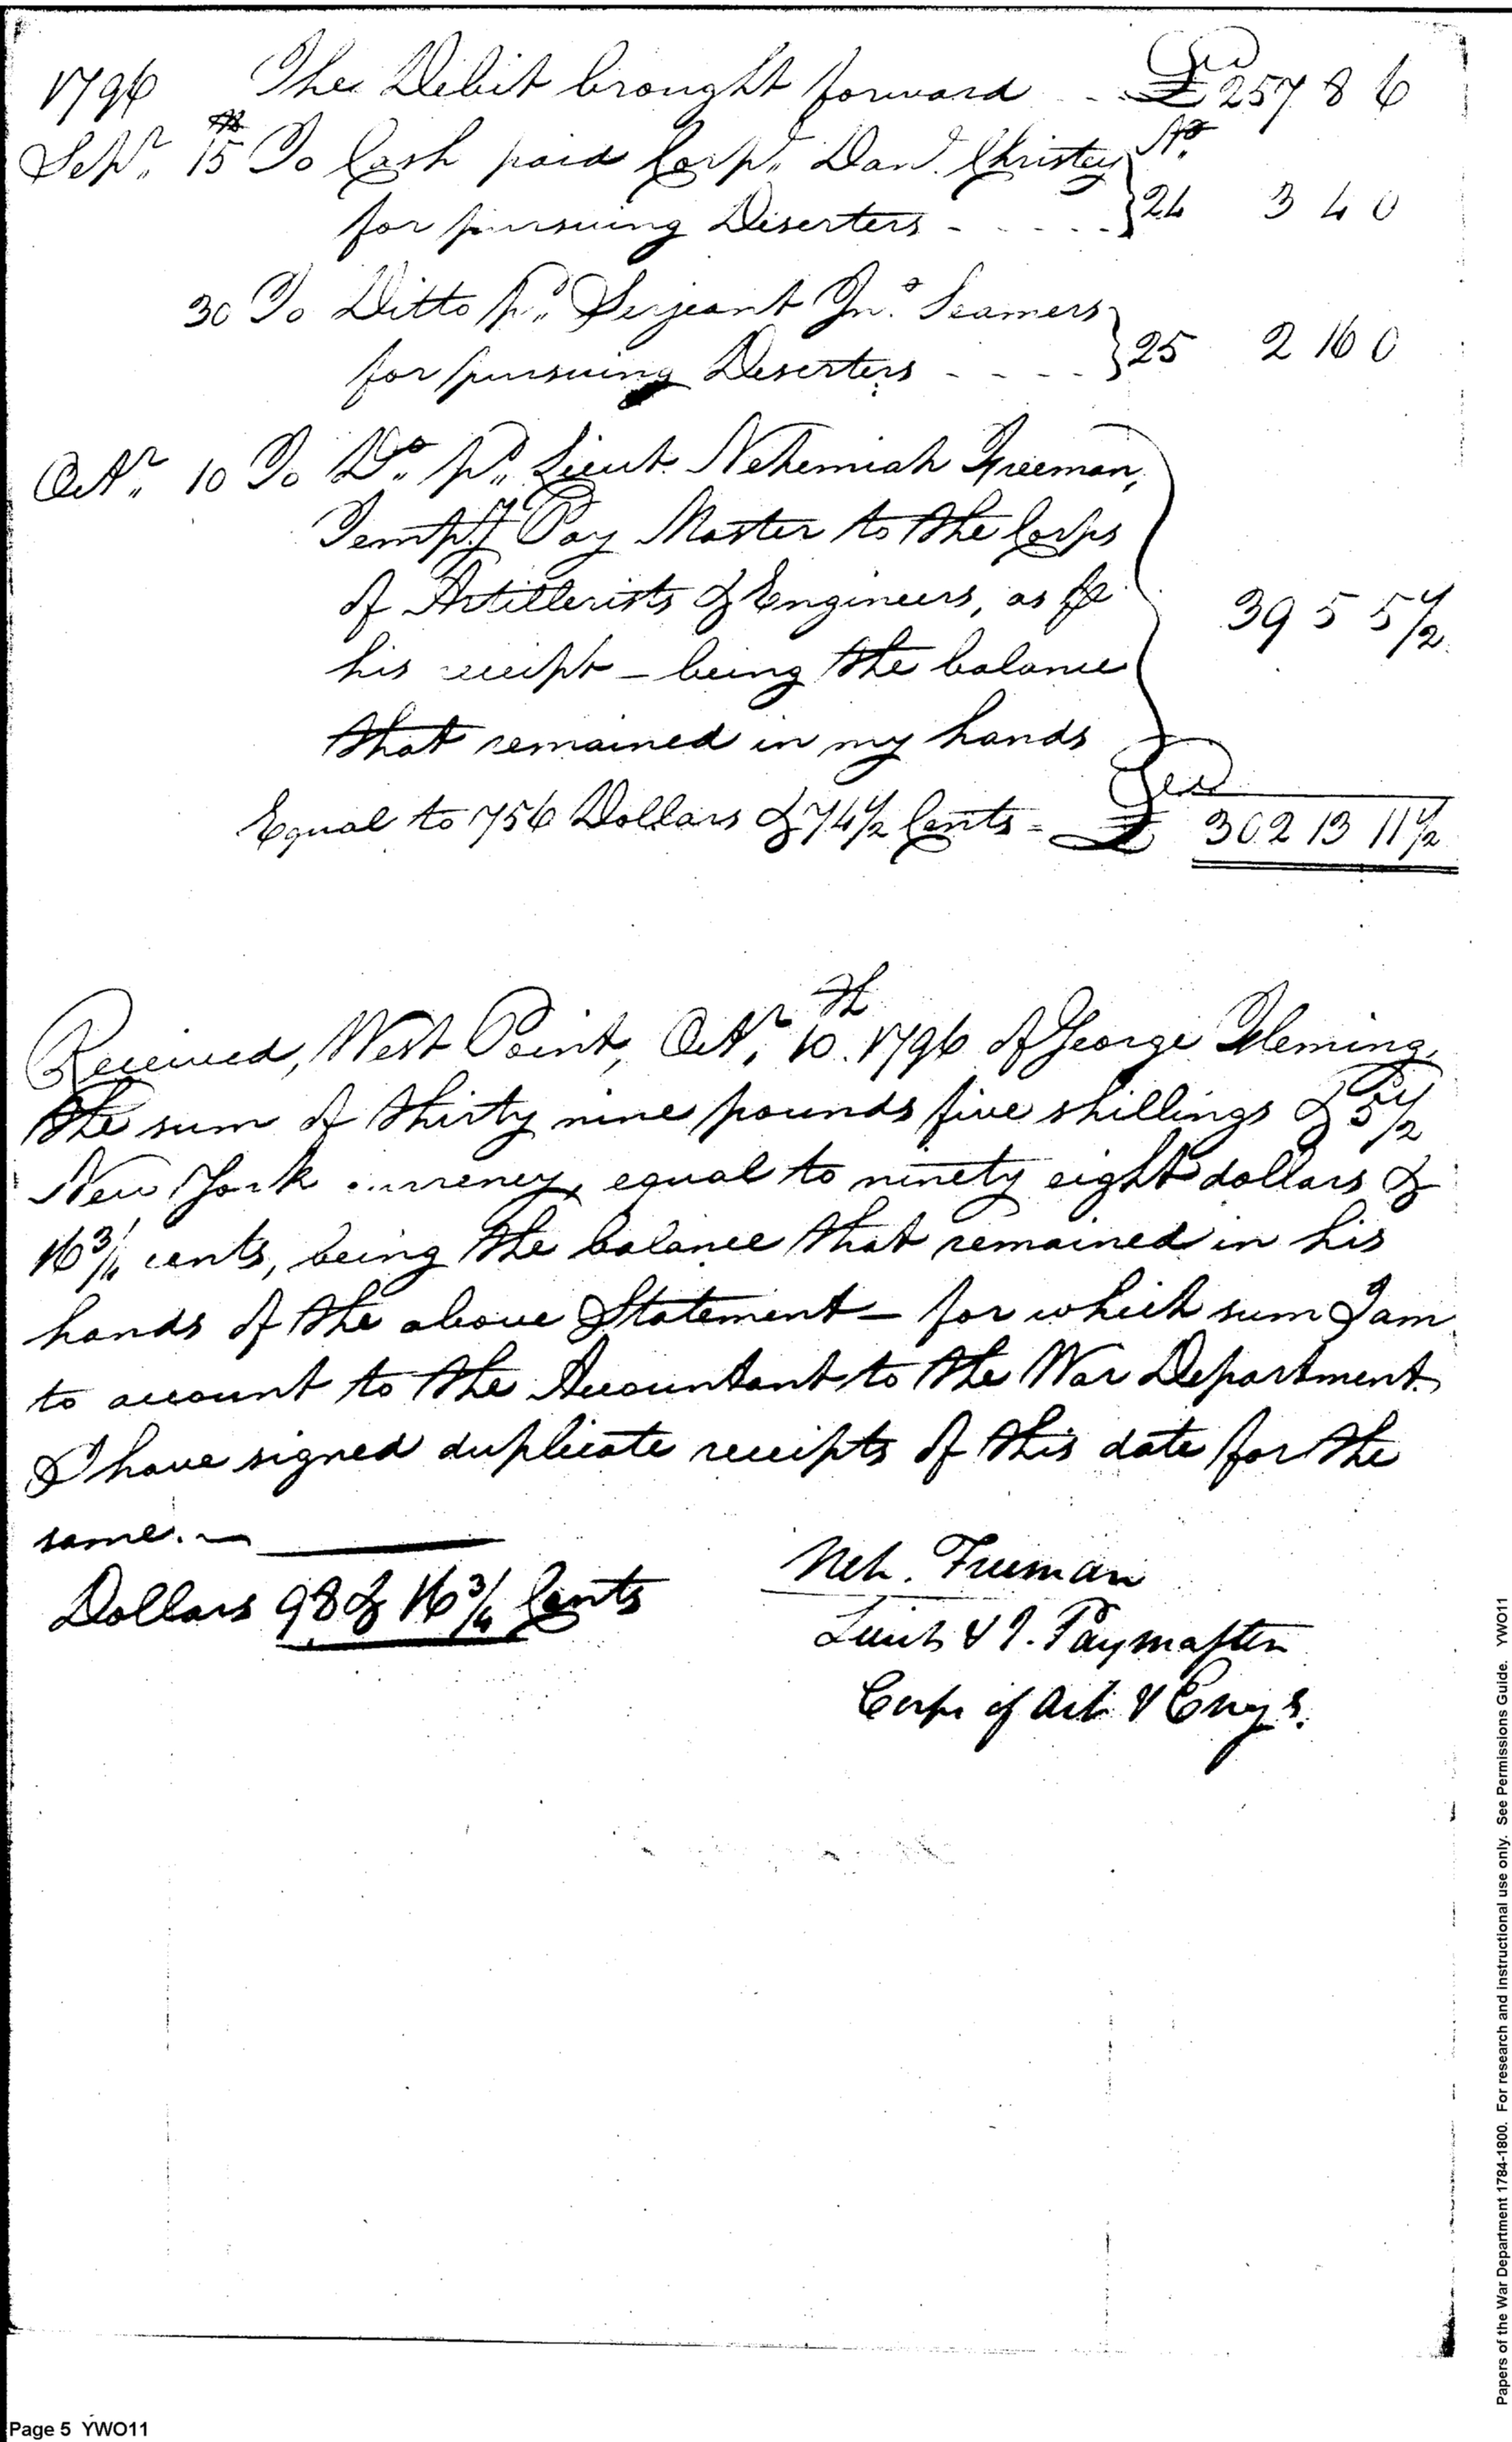 1796 The Debit brought forward - - £257 8 6
Sepr. 15th To Cash paid Corpl. Danl. Christey No.
for pursuing Diserters - - - - - } 24 3 4 0
30 To Ditto pd. Serjeant Jno. Seamers
for pursuing Deserters - - - - } 25 2 16 0
Octr. 10 To Do. pd. Lieut. Nehemiah Freeman,
Tempy. Pay Master to the Corps
of Artillerists & Engineers, as per
his receipt - being the balance 39 5 5 1/2
that remained in my hands
Equal to 756 Dollars & 74 1/2 Cents = £ 302 13 11 1/2
Received, West Point, Octr. 10th. 1796 of George Fleming,
the sum of thirty nine pounds five shillings & 5 1/2
New York currency, equal to ninety eight dollars &
16 3/4 cents, being the balance that remained in his
hands of the above Statement - for which sum I am
to account to the Accountant to the War Department.
I have signed duplicate receipts of this date for the
same. -
Dollars 98 & 16 3/4 Cents
Neh. Freeman
Lieut & T. Paymaster
Corps of Art. & Engrs.
Page 5 YWO11
Papers of the War Department 1784-1800. For research and instructional use only. See Permissions Guide. YWO11